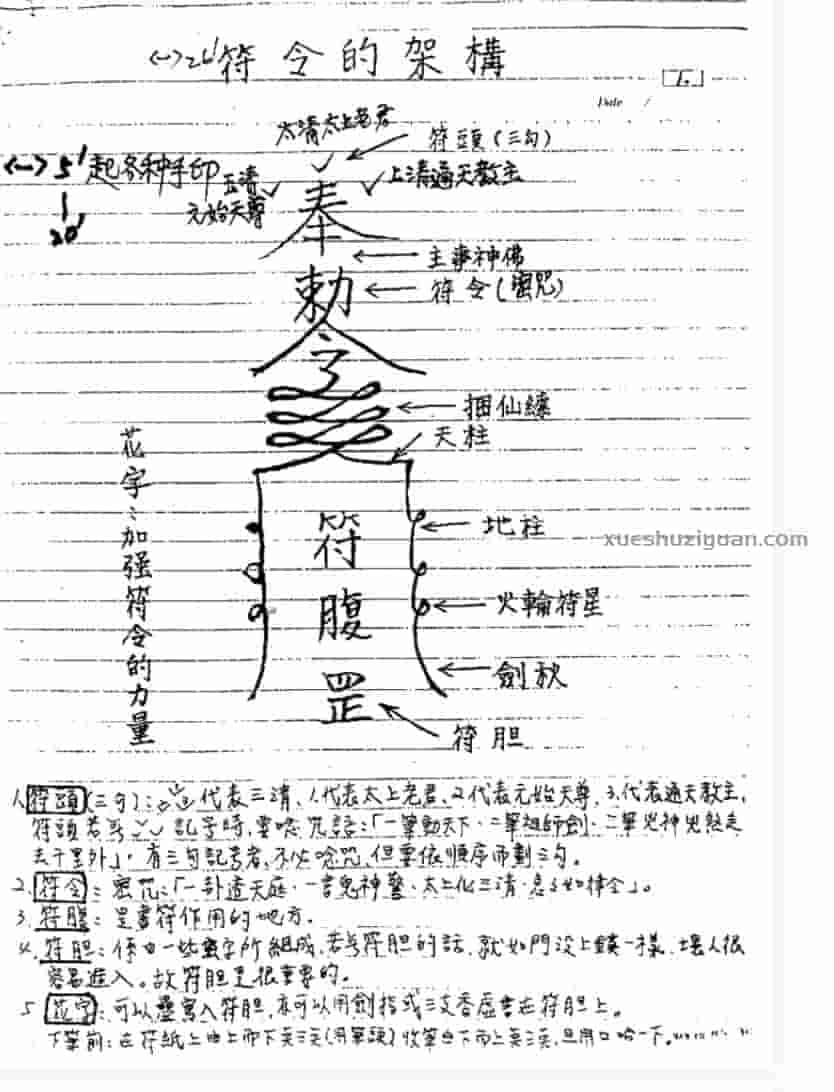 符令的架構
Date /
太清太上老君
符頭(三勾)
5'起各種手印
20'
玉清
元始天尊
上清通天教主
奉
主事神佛
勅
符令(密咒)
令
捆仙繩
天柱
花字:加強符令的力量
地柱
符
腹
罡
火輪符星
劍秋
符胆
xueshuziguan.com
1.符頭(三勾):代表三清、1.代表太上老君、2.代表元始天尊、3.代表通天教主。
符頭若 記号時,要唸咒語:「一筆動天下、二筆祖師劍、三筆兇神兇煞走
去千里外」,有三勾記号者,不必唸咒,但要依順序而劃三勾。
2.符令:密咒:「一卦透天庭、一書鬼神驚、太上化三清、急急如律令」。
3.符腹:是書符作用的地方。
4.符胆:係由一些 字所組成,若 符胆的話,就如門沒上鎖一樣,壞人很
容易進入。故符胆是很重要的。
5.花字:可以疊寫入符胆,亦可以用劍指或三支香虛書在符胆上。
下筆前:在符紙上由上而下 三 (用筆頭)收筆由下而上 三 ,且用口哈一下。